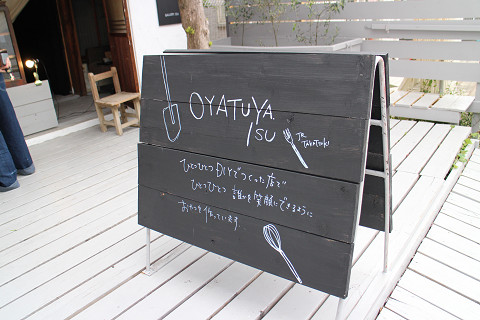 OYATUYA.
SU
ひとつひとつ DIYでつくった店で
ひとつひとつ 誰かを笑顔にできるように
おやつを作っています。